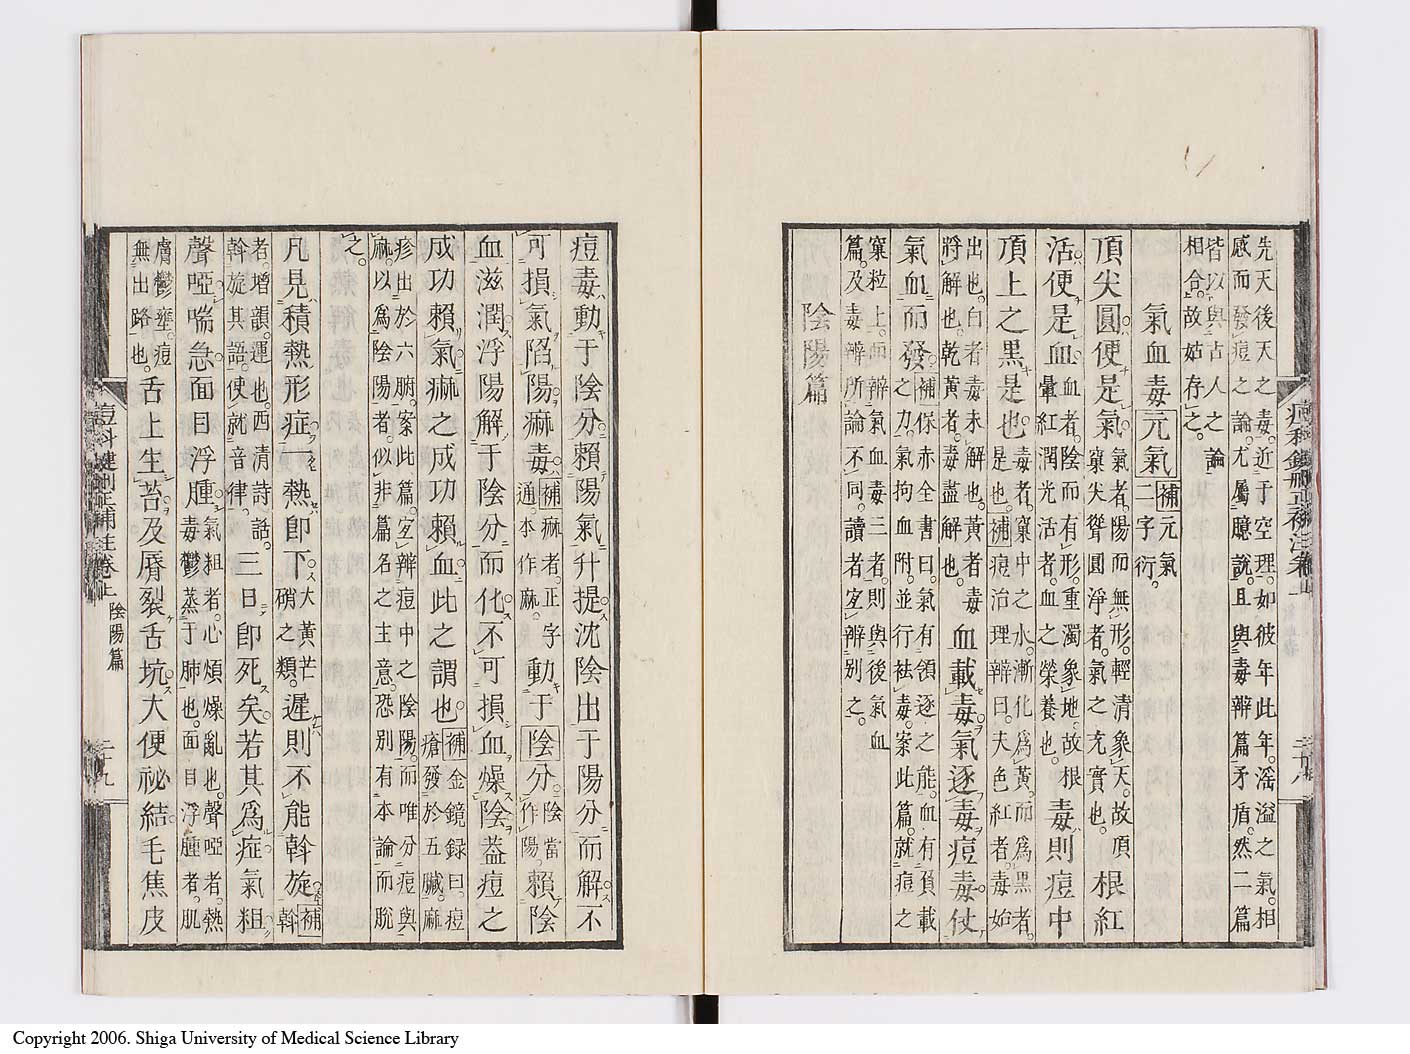 先天後天之毒。近于空理。如彼年此年。滛溢之氣。相
感而發痘之論。尤屬臆説。且與毒辯篇矛盾。然二篇
皆以與古人之論
相合。故姑存之。
氣血毒元氣補元氣二字衍。
頂尖圓便是氣。氣者。陽而無形。輕清象天。故頂窠尖聳圓淨者。氣之充實也。根紅
活便是血。血者。陰而有形。重濁象地。故根暈紅潤光活者。血之榮養也。毒則痘中
頂上之黑是也。毒者。窠中之水。漸化為黃。而為黑者。是也。補痘治理辯曰。夫色紅者。毒始
出也。白者毒未解也。黃者毒將解也。乾黃者。毒盡解也。血載毒。氣逐毒。痘毒仗
氣血而發。補保赤全書曰。氣有領逐之能。血有負載之力。氣拘血附。並行袪毒。案此篇。就痘之
窠粒上。而辯氣血毒三者。則與後氣血
篇。及毒辨所論不同。讀者宜辨别之。
陰陽篇
痘科鍵刪正補注卷上
二十八
痘毒動于陰分。賴陽氣升提。沈陰出于陽分。而解。不
可損氣陷陽。痲毒補痲者。正字通。本作麻。動于陰分。陰當作陽。賴陰
血滋潤。浮陽解于陰分。而化。不可損血燥陰。葢痘之
成功賴氣。痲之成功賴血。此之謂也。補金鏡録曰。痘瘡發於五臟。麻
疹出於六腑。案此篇。宜辯痘中之陰陽。而唯分痘與
麻。以為陰陽者。似非篇名之主意。恐别有本論而脱
之。
凡見積熱形症。一熱卽下。大黃芒硝之類。遲則不能斡旋。補斡
者。増韻。運也。西清詩話。斡旋其語。便就音律。二三日卽死矣。若其為症。氣粗
聲啞。喘急。面目浮腫。氣粗者。心煩燥亂也。聲啞者。熱毒鬱蒸于肺也。面目浮腫者。肌
膚鬱壅。痘無出路也。舌上生苔。及唇裂舌坑。大便祕結。毛焦皮
痘科鍵刪正補註卷上
陰陽篇
二十九
Copyright 2006. Shiga University of Medical Science Library